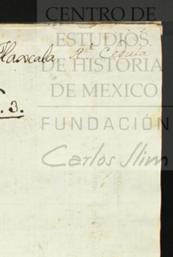 CENTRO DE
ESTUDIOS
DE HISTORIA
DE MEXICO
Tlaxcala
.3.
FUNDACIÓN
Carlos Slim